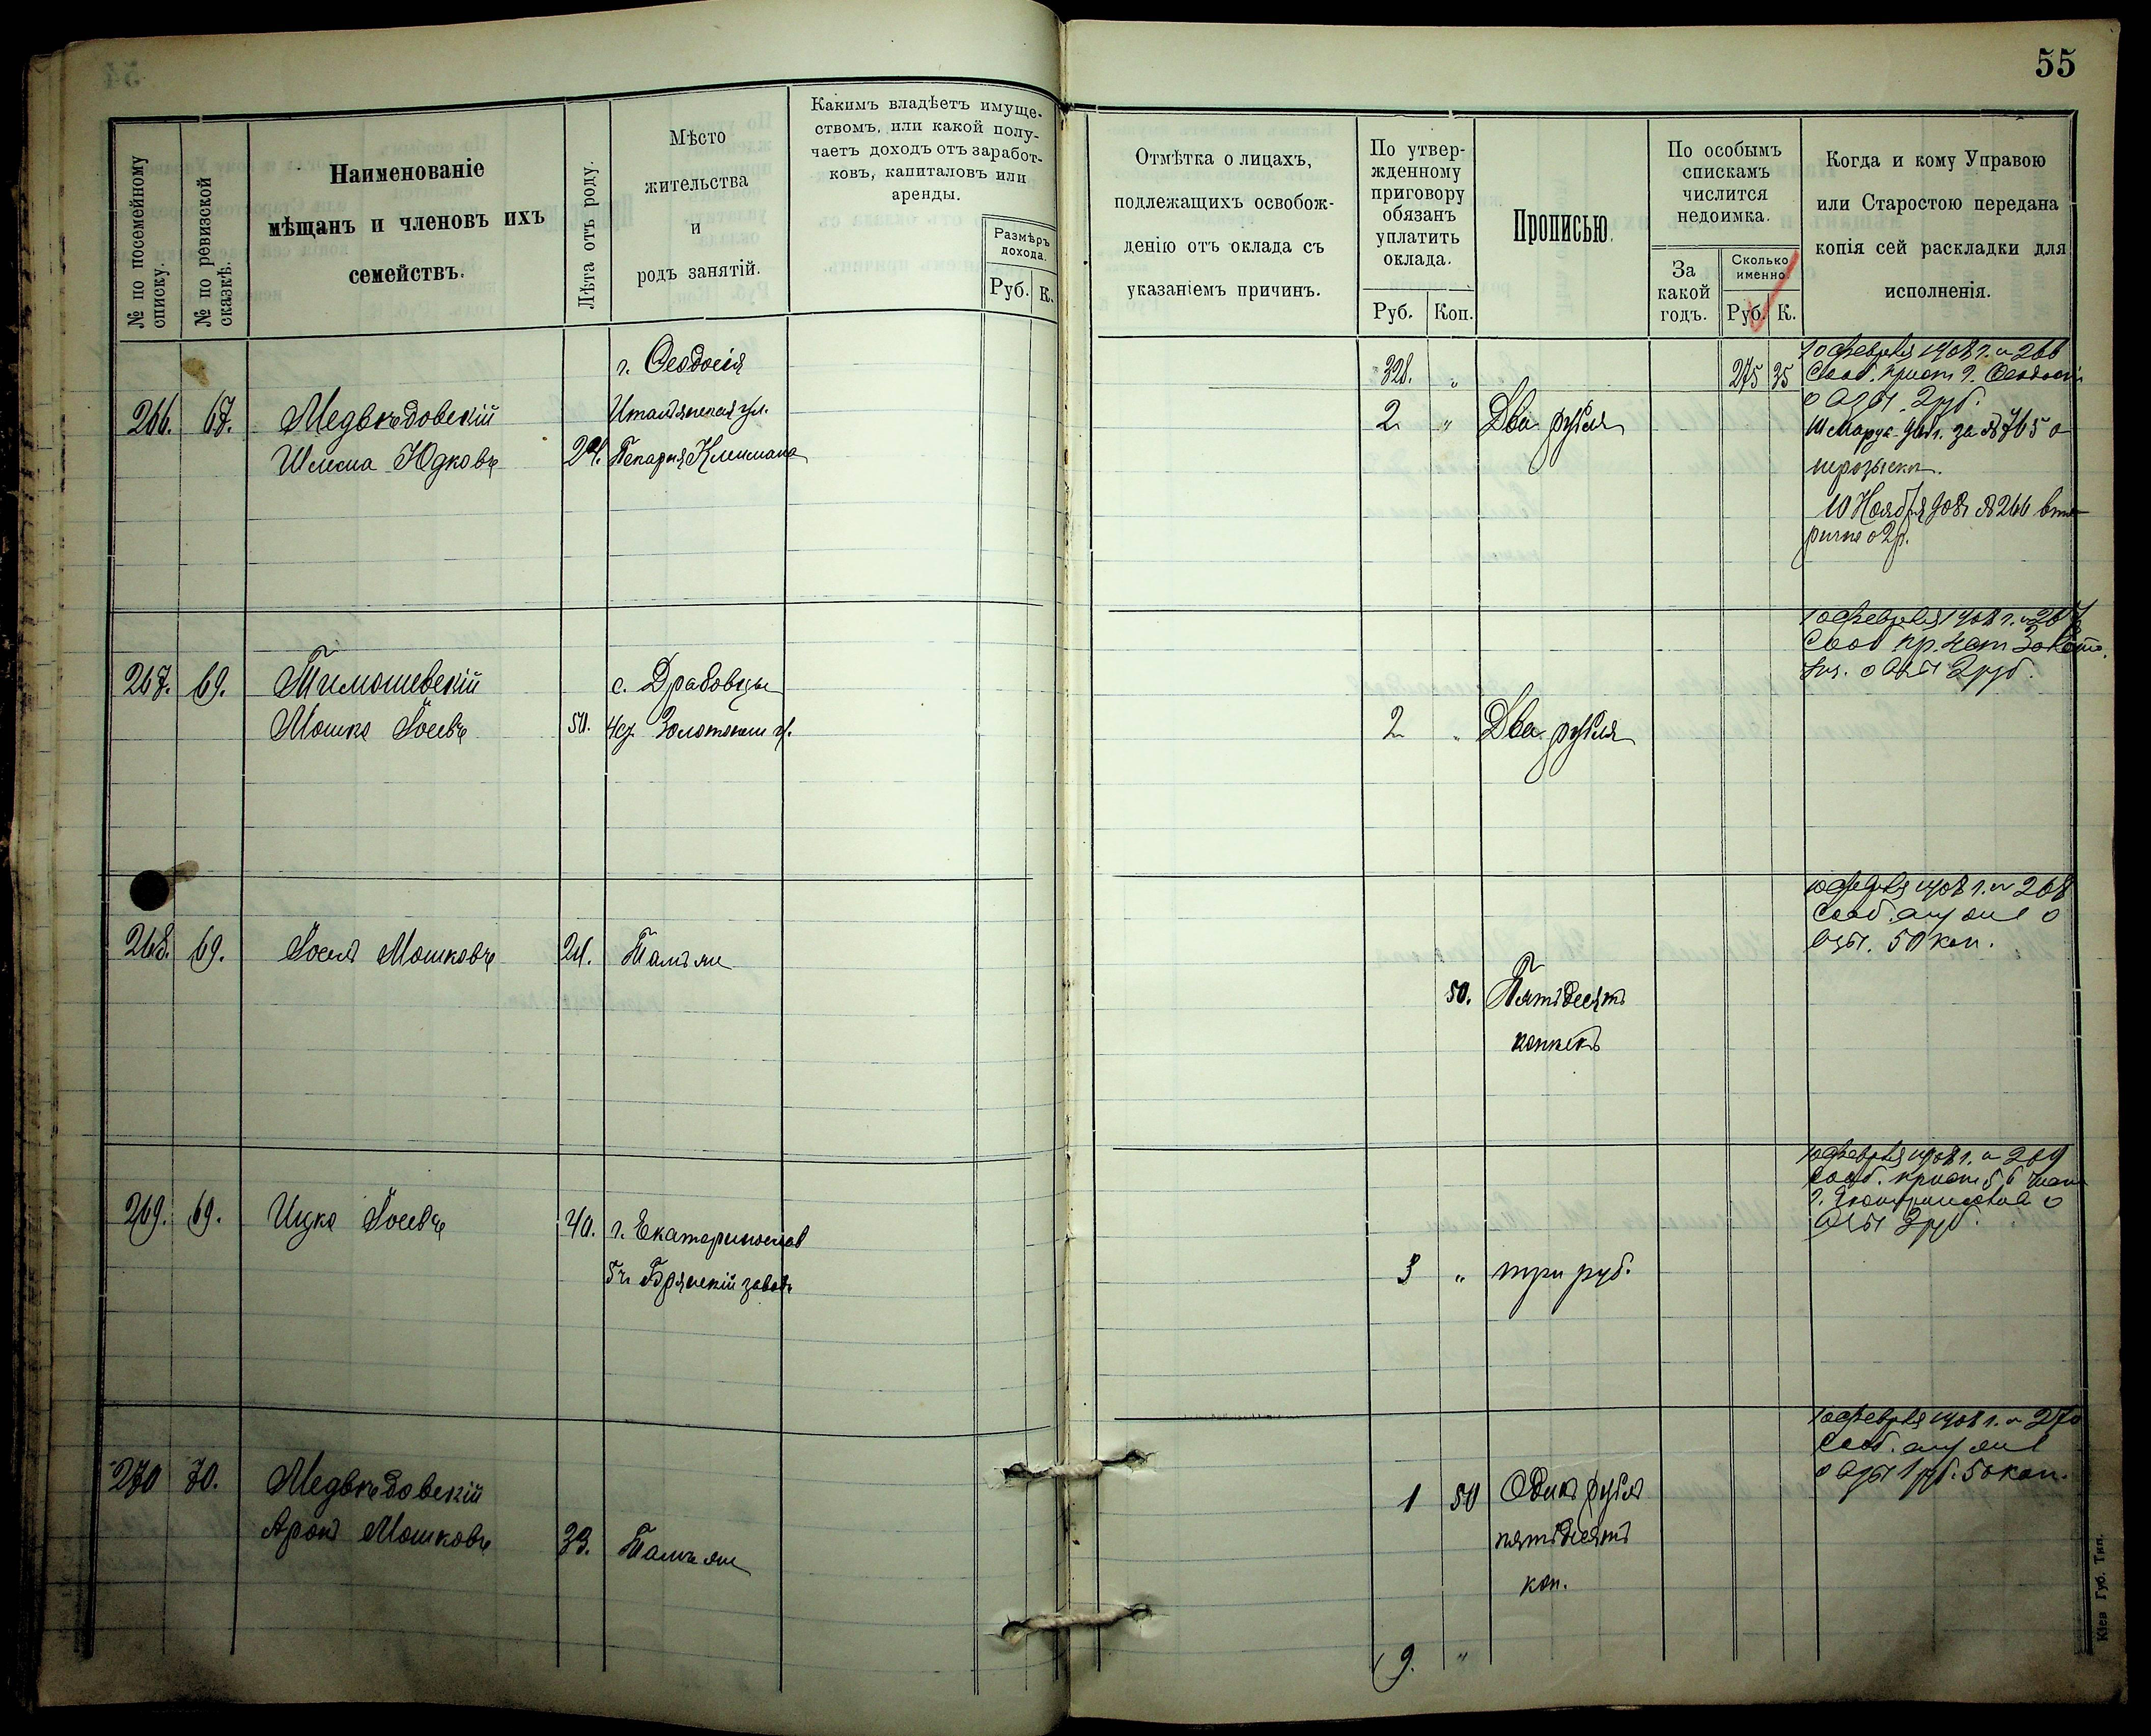 55
№ по посемейному списку.
№ по ревизской сказкѣ.
Наименованіе
мѣщанъ и членовъ ихъ
семействъ.
Лѣта отъ роду.
Мѣсто
жительства
и
родъ занятій.
Какимъ владѣетъ имуще-
ствомъ, или какой полу-
чаетъ доходъ отъ заработ-
ковъ, капиталовъ или
аренды.
Размѣръ
дохода.
Руб. К.
Отмѣтка о лицахъ,
подлежащихъ освобож-
денію отъ оклада съ
указаніемъ причинъ.
По утвер-
жденному
приговору
обязанъ
уплатить
оклада.
Руб. Коп.
Прописью.
По особымъ
спискамъ
числится
недоимка.
За
какой
годъ.
Сколько
именно.
Руб. К.
Когда и кому Управою
или Старостою передана
копія сей раскладки для
исполненія.
г. Ѳеодосія
328. „ 275 35
10 февраля 1908 г. № 266
Сооб. прист г. Ѳеодосіи
266. 67. Медвѣдовскій Итальянская ул. 2 „ Два рубля
о взы. 2 руб.
Шлема Юдковъ 24. Пекарня Клейманa
за № 765 о
розыскѣ.
10 Ноября 908 г № 266 вто-
рично о 2 р.
10 февраля 1908 г. № 267
Сооб пр.
о взы 2 руб.
267. 69. Тимошевскій с. Драбовцы
Мошко Іосевъ 50. Золотонош у. 2 „ Два рубля
10 февраля 1908 г. № 268
Сооб. о
взы. 50 коп.
268. 69. Іосель Мошковъ 21. Тамъ же
50. Пятьдесятъ
копѣекъ
10 февраля 1908 г. № 269
Сооб. прист 5
г. Екатеринослава о
взы 3 руб.
269. 69. Ицко Іосевъ 40. г. Екатеринослав
5 ч Брянскій завод. 3 „ три руб.
10 февраля 1908 г. № 270
Сооб.
о взы 1 руб. 50 коп.
270 70. Медвѣдовскій 1 50 Одинъ рубль
Аронъ Мошковъ 33. Тамъ же пятьдесятъ
коп.
9. „
Кіев Губ. Тип.